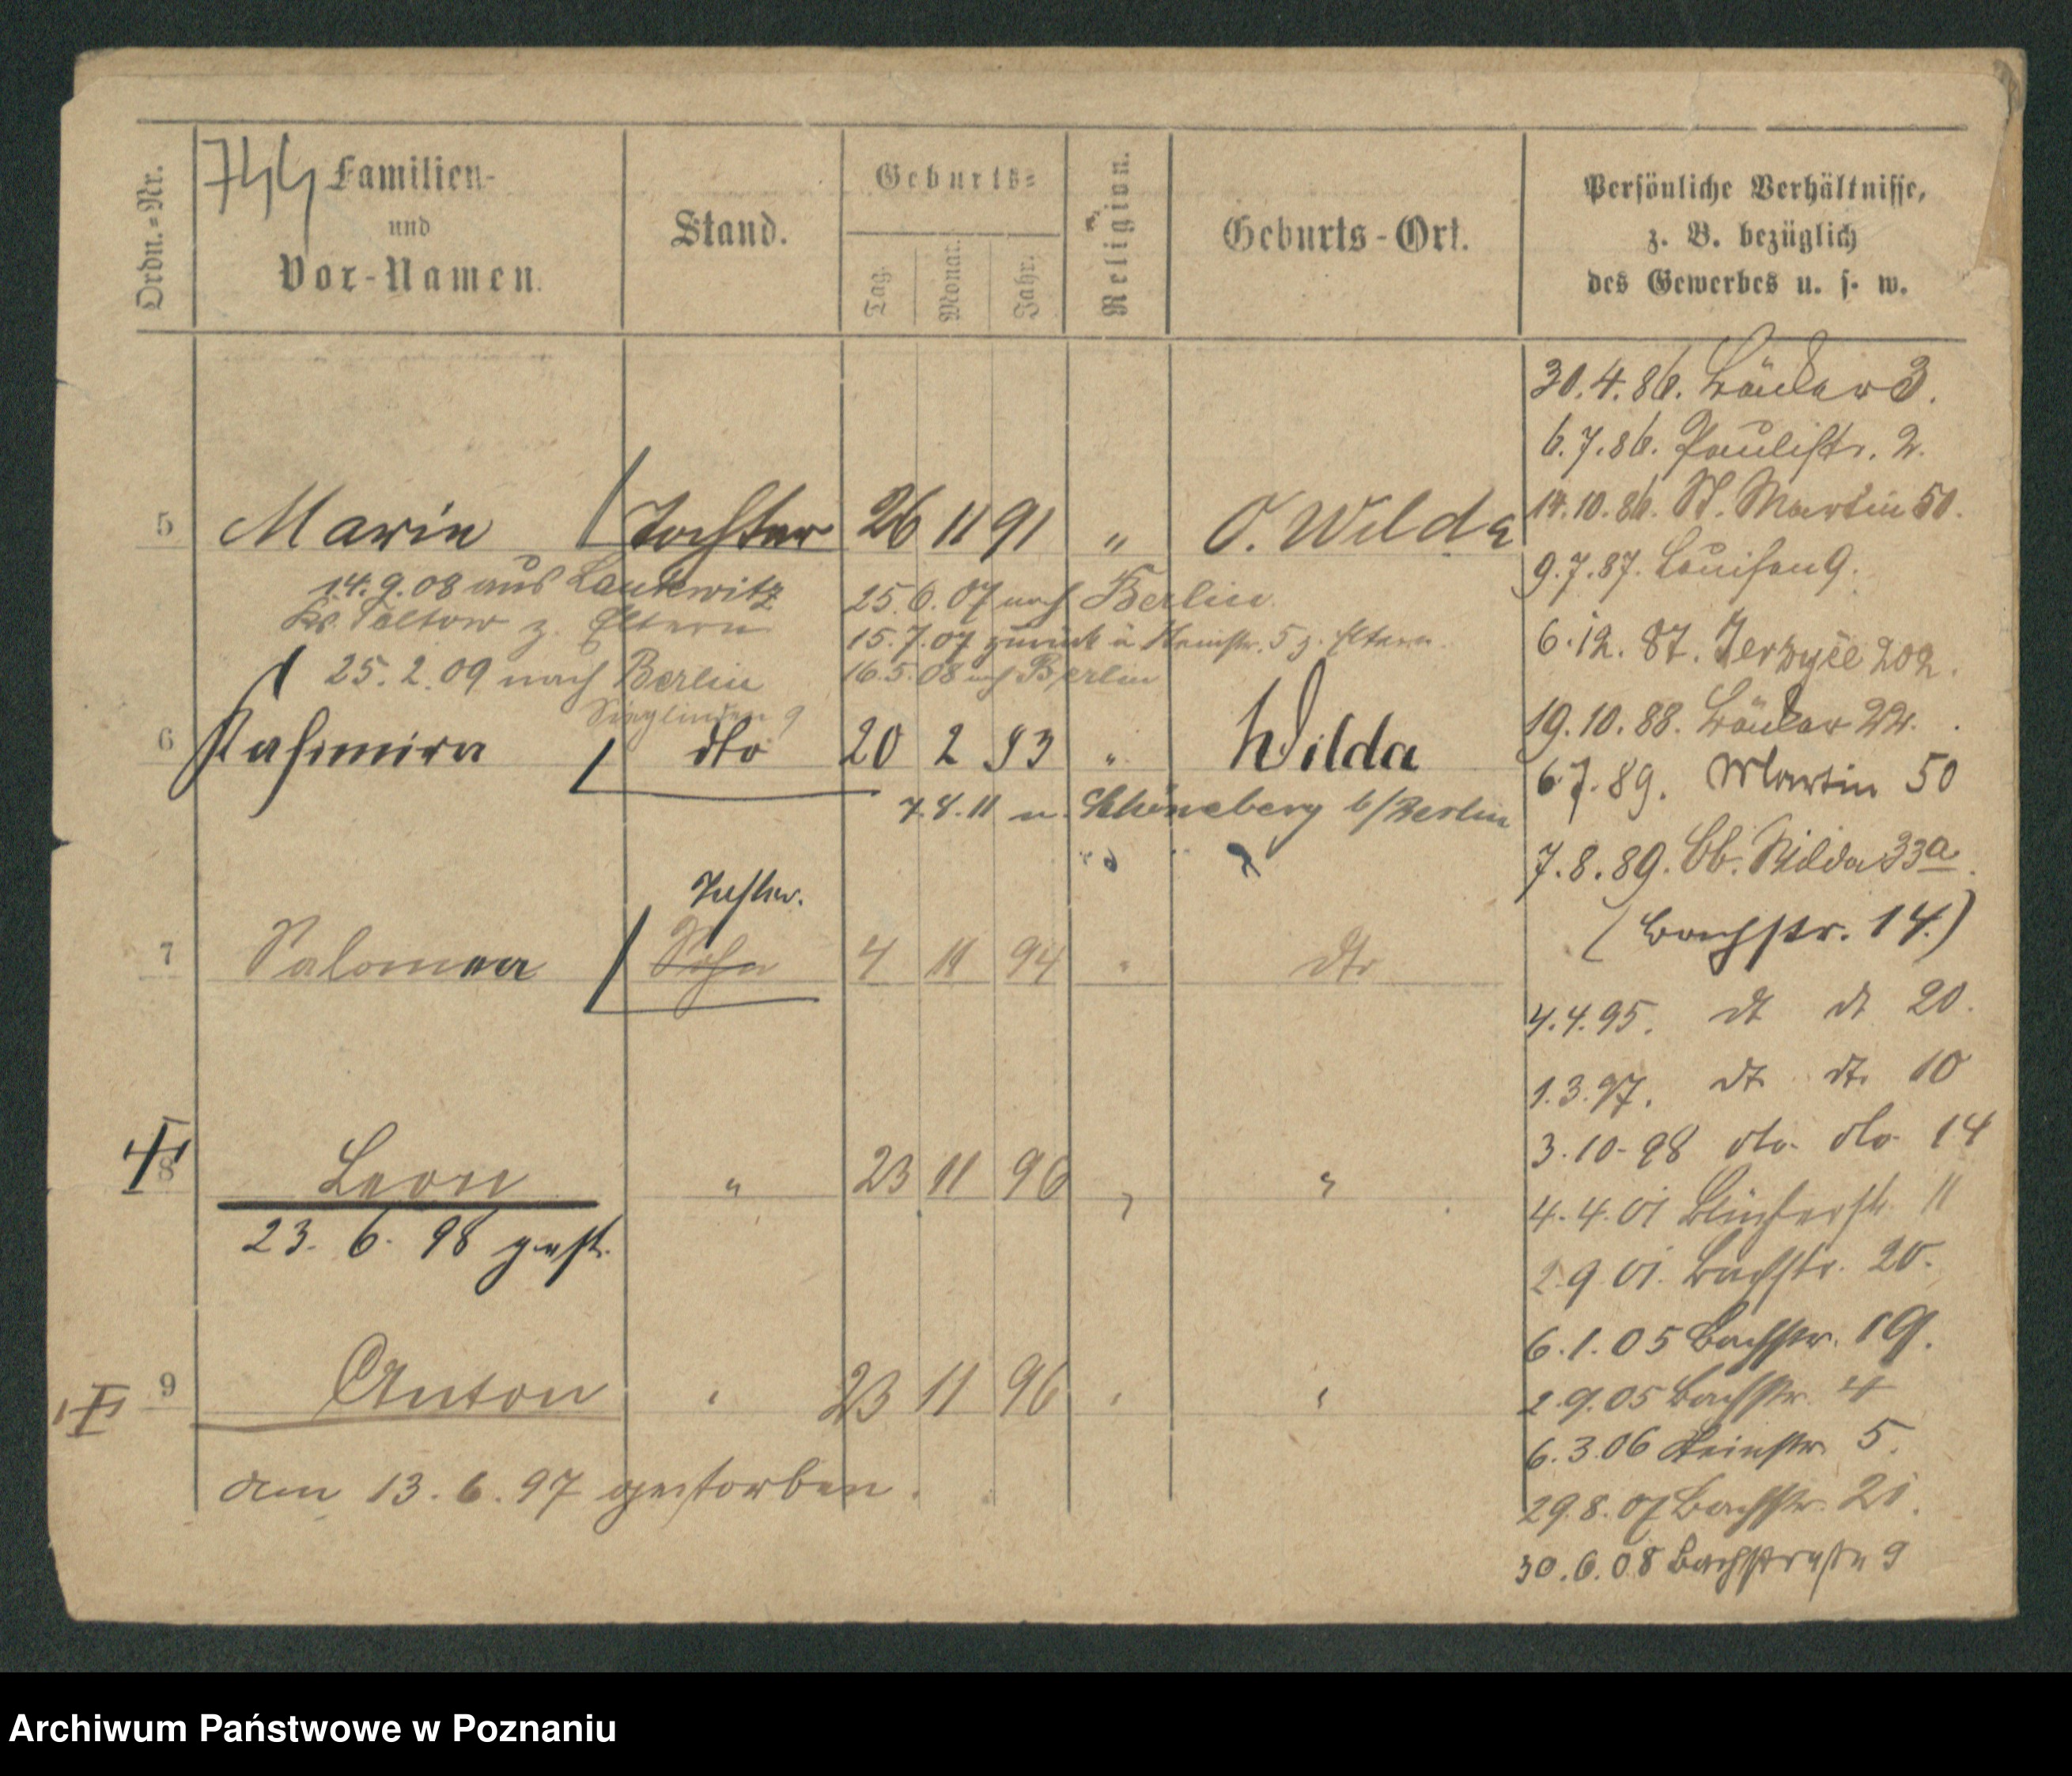 744
Ordn.-Nr.
Familien-
und
Vor-Namen.
Stand.
Geburts-
Tag.
Monat.
Jahr.
Religion.
Geburts-Ort.
Persönliche Verhältnisse,
z. B. bezüglich
des Gewerbes u. s. w.
5 Marie Tochter 26 11 91 " O. Wilda
14.9.08 aus Lankwitz
Kr. Teltow z. Eltern
25.2.09 nach Berlin
25.6.07 nach Berlin
15.7.07 zurück 5 z. Eltern
16.5.08 nch Berlin
6 Kasimira dto 20 2 93 " Wilda
7.8.11 n. Schöneberg b/Berlin
Tochter.
7 Salomea Sohn 4 11 94 " dto
8 Leon " 23 11 96 " "
23. 6. 98 gest.
9 Anton " 23 11 96 " "
am 13. 6. 97 gestorben.
30.4.86. 3.
6.7.86. Paulistr. 2.
14.10.86. St. Martin 50.
9.7.87. Louisen 9.
6.12.87. Jerzyce 202.
19.10.88. 22.
6.7.89. Martin 50
7.8.89. Ob. Wilda 33a.
(Bachstr. 14.)
4.4.95. dt dt 20.
1.3.97. dt. dt. 10
3.10.98 dto. dto. 14
4.4.01 Blücherstr. 11
2.9.01. Bachstr. 20.
6.1.05 Bachstr. 19.
2.9.05 Bachstr. 4
6.3.06 5.
29.8.07 Bachstr. 21.
30.6.08 Bachstraße 9
Archiwum Państwowe w Poznaniu